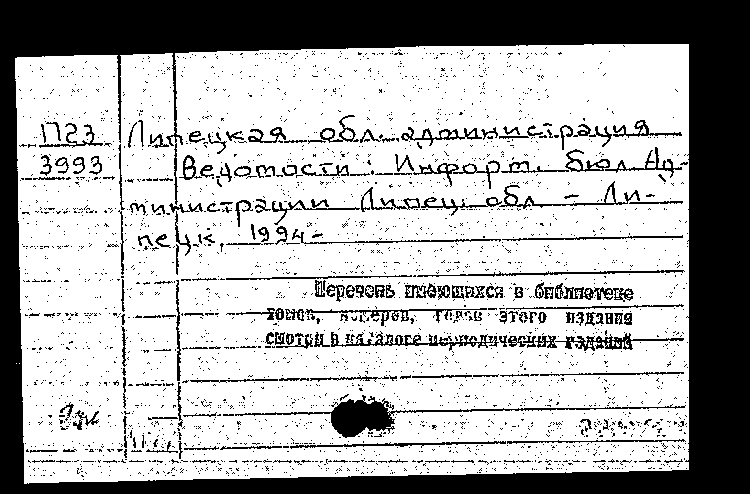 П23 Липецкая обл. администрация
3993 Ведомости: Информ. бюл. Ад-
министрации Липец. обл. – Ли-
пецк, 1994-
Перечень имеющихся в библиотеке
томов, номеров, годов этого издания
смотри в каталоге периодических изданий